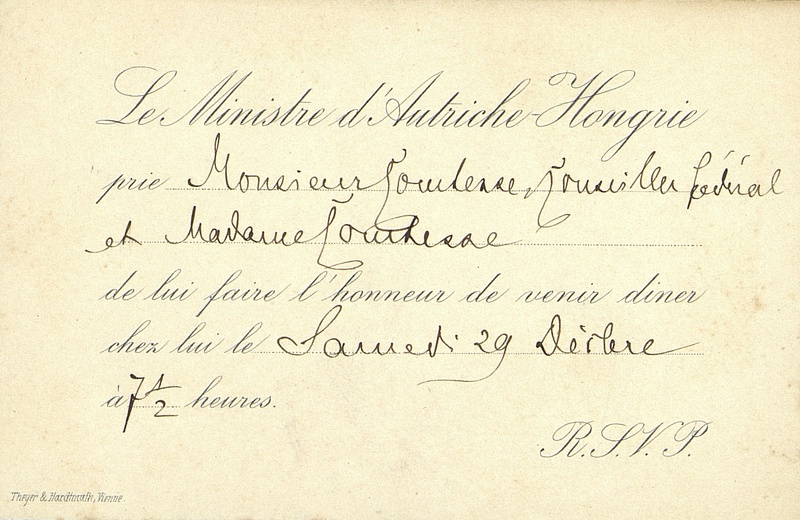 Le Ministre d'Autriche-Hongrie
prie Monsieur Comtesse, Conseiller fédéral
et Madame Comtesse
de lui faire l'honneur de venir dîner
chez lui le Samedi 29 Décbre
à 7 1/2 heures.
R.S.V.P.
Theyer & Hardtmuth, Vienne.